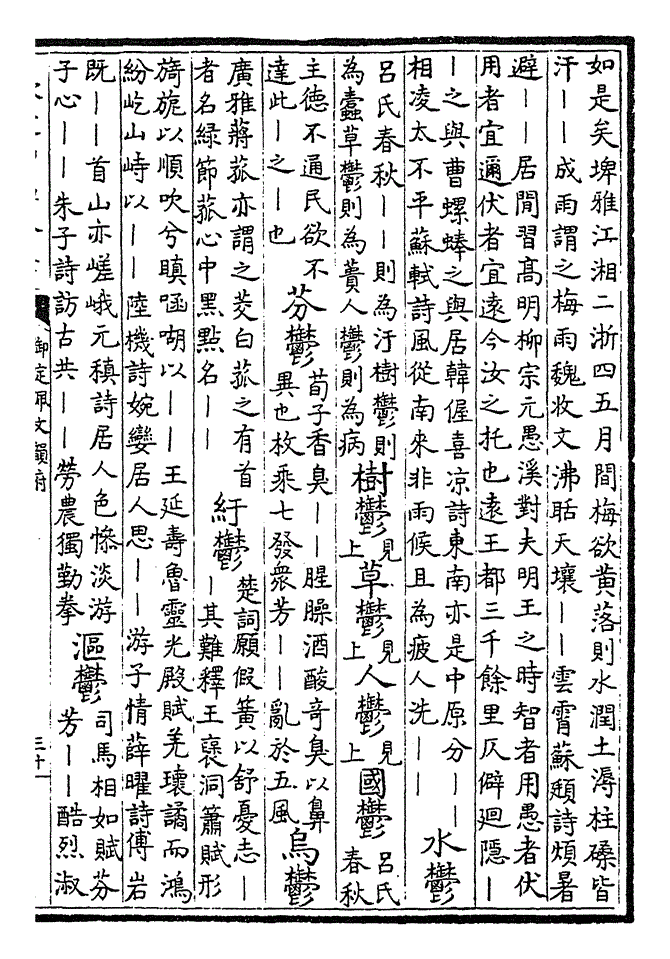 如是矣埤雅江湘二浙四五月間梅欲黄落則水潤土溽柱磉皆
汗——成雨謂之梅雨魏收文沸聒天壤——雲霄蘇頲詩煩暑
避——居閒習髙明柳宗元愚溪對夫明王之時智者用愚者伏
用者宜邇伏者宜遠今汝之托也遠王都三千餘里仄僻廻隱—
—之與曹螺蜯之與居韓偓喜凉詩東南亦是中原分——
相凌太不平蘇軾詩風從南來非雨候且為疲人洗——
水鬱
呂氏春秋——則為汙樹鬱則
為蠹草鬱則為蕢人鬱則為病
樹鬱 見上 草鬱 見上 人鬱 見上 國鬱 呂氏春秋
主德不通民欲不
達此—之—也
芬鬱
荀子香臭——腥臊酒酸奇臭以鼻
異也枚乘七發衆芳——亂於五風
烏鬱
廣雅蔣菰亦謂之茭白菰之有首
者名緑節菰心中黑點名——
紆鬱
楚詞願假簧以舒憂志—
—其難釋王襃洞簫賦形
旖旎以順吹兮瞋㖤㗅以——王延壽魯靈光殿賦羌瓌譎而鴻
紛屹山峙以——陸機詩婉孌居人思——游子情薛曜詩傅岩
既——首山亦嵯峨元稹詩居人色慘淡游
子心——朱子詩訪古共——勞農獨勤拳
漚鬱
司馬相如賦芬
芳——酷烈淑
御定佩文韻府